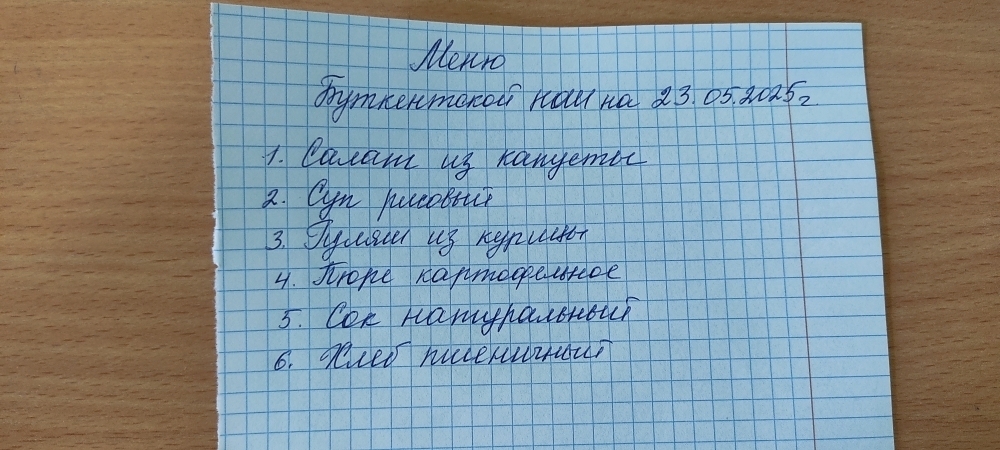 Меню
Буткентской нош на 23.05.2025г
1. Салат из капусты
2. Суп рисовый
3. Гуляш из курицы
4. Пюре картофельное
5. Сок натуральный
6. Хлеб пшеничный